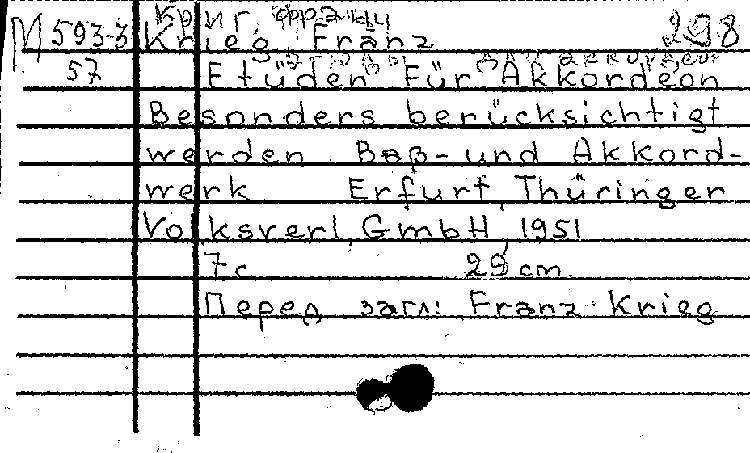 Криг, Франц
М 593-3 Krieg, Franz 298
Этюды для аккордеона
57 Etüden Für Akkordeon
Besonders berücksichtigt
werden Baß- und Akkord-
werk Erfurt, Thüringer
Volksverl, GmbH, 1951
7 с 29 cm
Перед загл: Franz Krieg